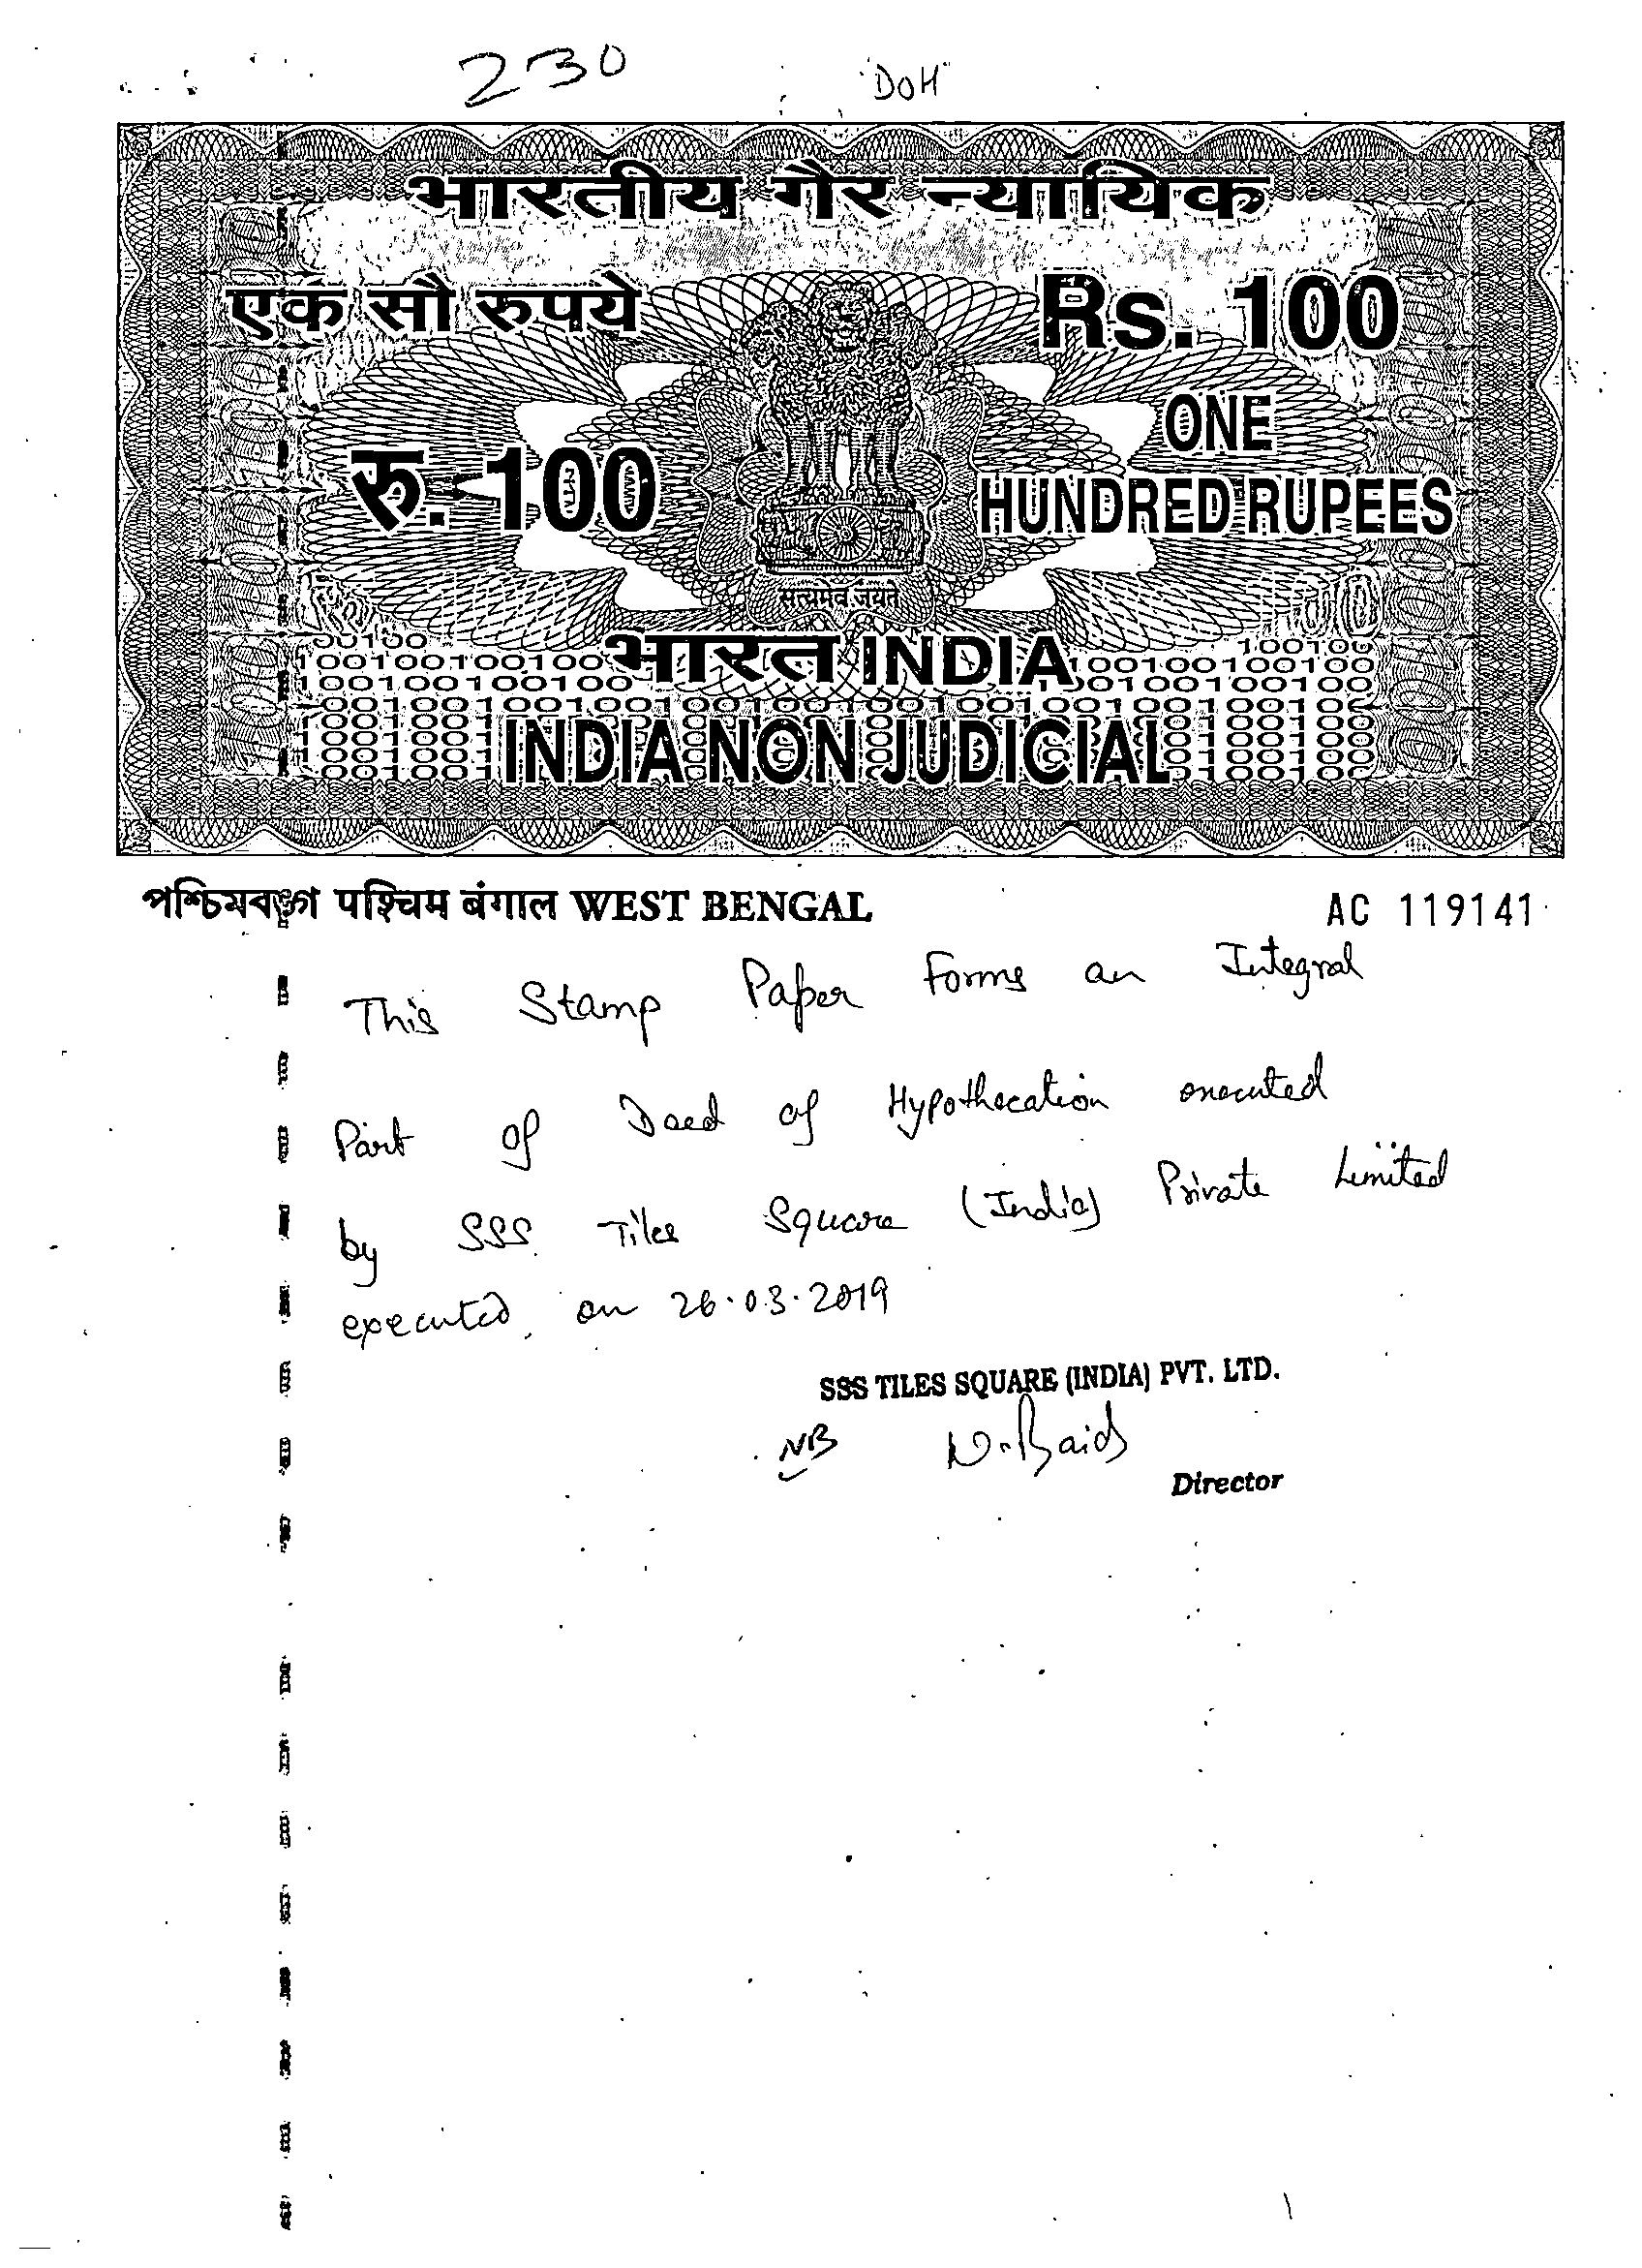 230 "DOH"
भारतीय गैर न्यायिक
एक सौ रुपये Rs. 100
ONE
रु. 100 HUNDRED RUPEES
सत्यमेव जयते
भारत INDIA
INDIA NON JUDICIAL
পশ্চিমবঙ্গ पश्चिम बंगाल WEST BENGAL AC 119141
This Stamp Paper Forms an Integral
Part of Deed of Hypothecation executed
by SSS Tiles Square (India) Private Limited
executed on 26.03.2019
SSS TILES SQUARE (INDIA) PVT. LTD.
NB N. Baid
Director